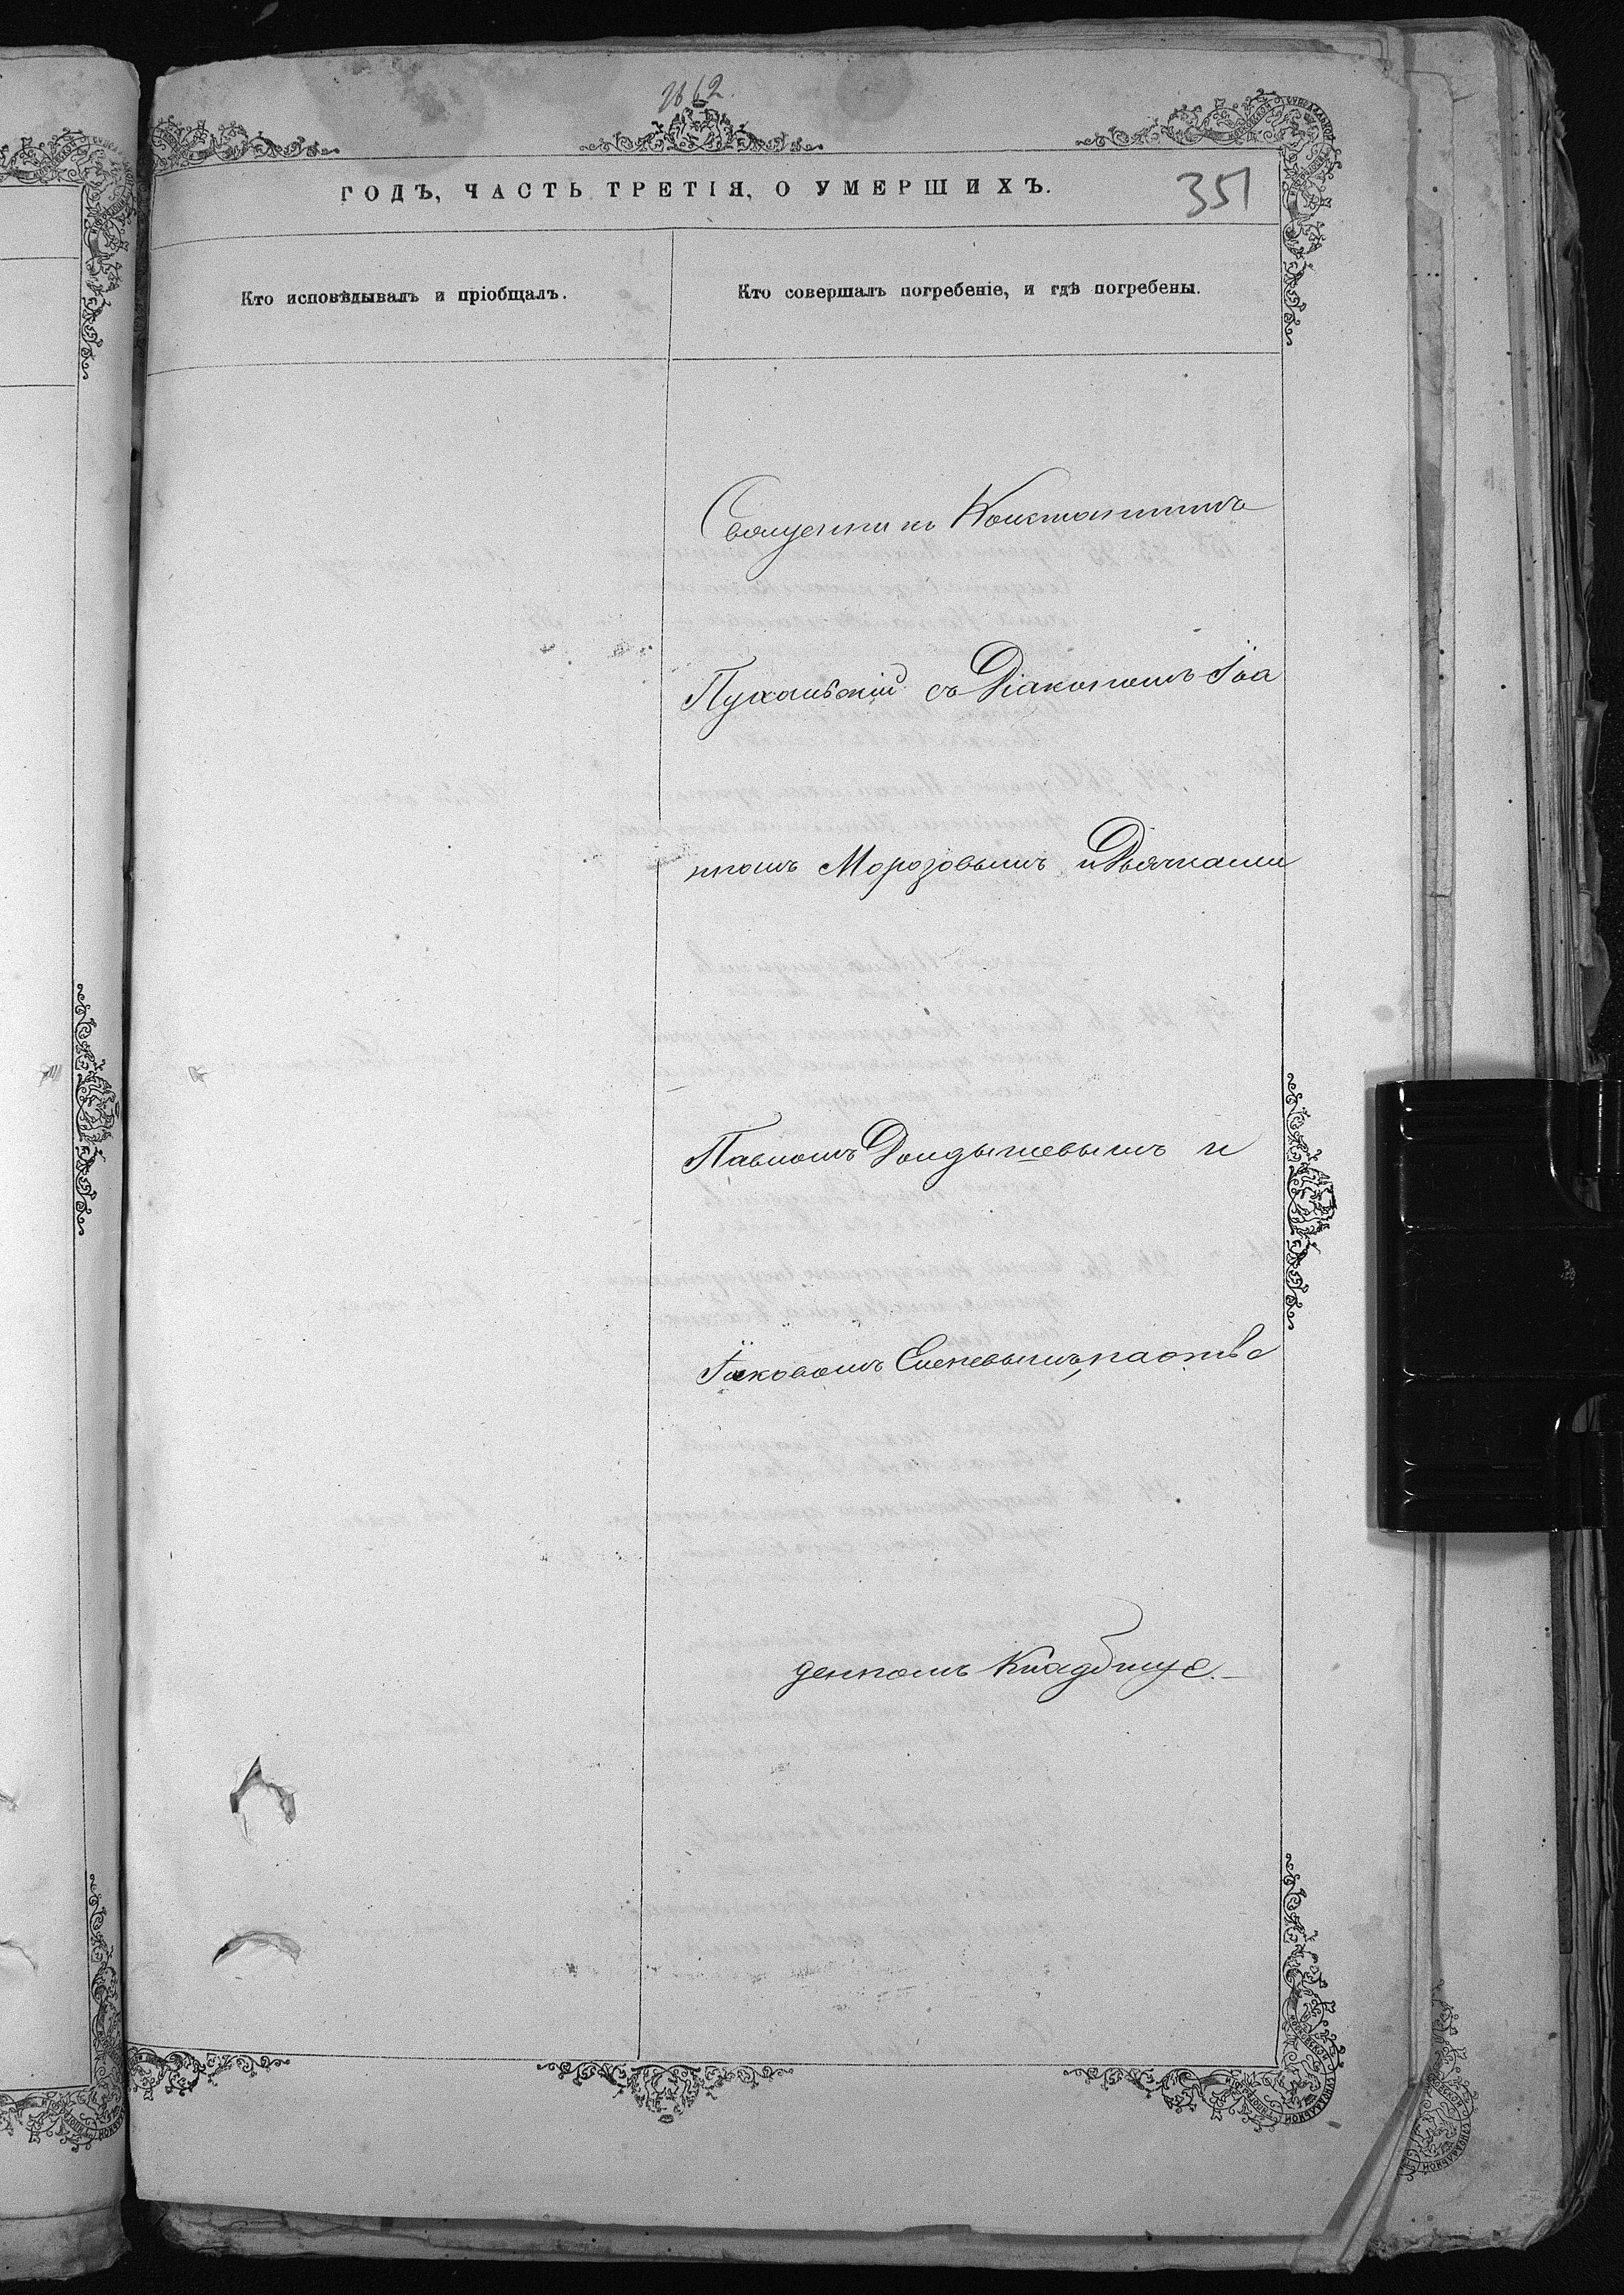 1862.
ГОДЪ, ЧАСТЬ ТРЕТІЯ, О УМЕРШИХЪ.
351
Кто исповѣдывалъ и пріобщалъ.
Кто совершалъ погребеніе, и гдѣ погребены.
Священникъ Константинъ
Пухальскій съ Діакономъ Іоа
нномъ Морозовымъ и Дьячками
Павломъ и
Іаковомъ на отве
денномъ Кладбище.